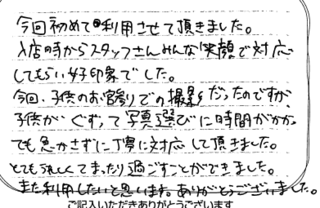 今回初めて利用させて頂きました。
入店時からスタッフさんみんな笑顔で対応
してもらい好印象でした。
今回、子供のお宮参りでの撮影だったのですが、
子供がぐずって写真選びに時間がかかっ
ても急かさずに丁寧に対応して頂きました。
とてもうれしくてまったり過ごすことができました。
また利用したいと思います。ありがとうございました。
ご記入いただきありがとうございます